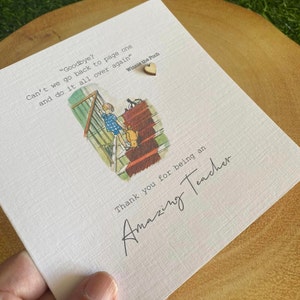 "Goodbye?
Can't we go back to page one
and do it all over again"
Winnie the Pooh
Thank you for being an
Amazing Teacher